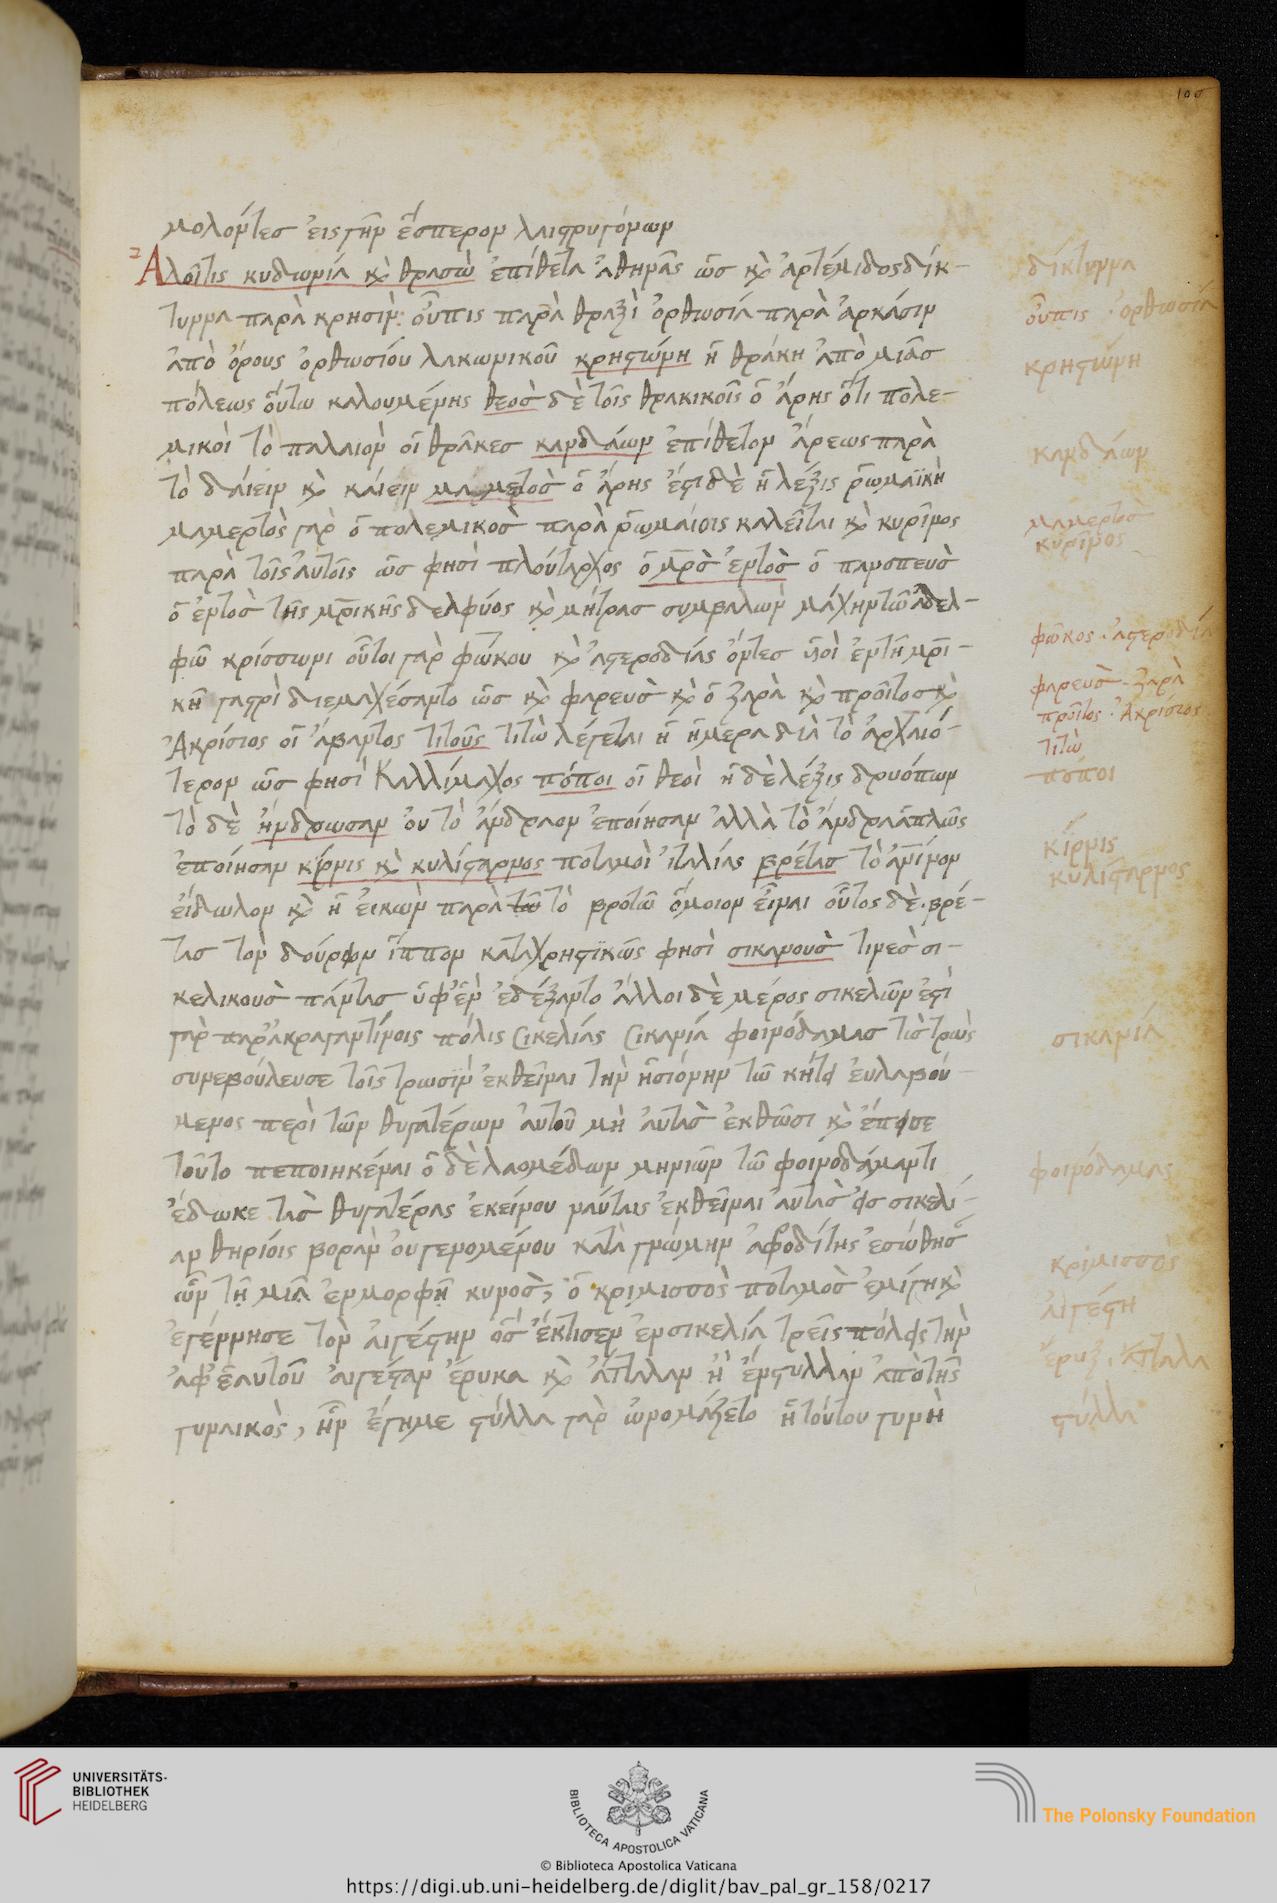 100
μολόντες εἰς γῆν ἕσπερον λαιστρυγόνων
Ἀλοῖτις κυδωνία κὺ θρασὼ ἐπίθετα ἀθηνᾶς ὡσ κὺ ἀρτέμιδος δίκ-
τυννα παρὰ κρησὶν: οὖπις παρὰ θραξὶ ὀρθωσία παρὰ ἀρκάσιν
ἀπὸ ὄρους ὀρθωσίου λακωνικοῦ κρηστώνη ἡ θράκη ἀπὸ μιᾶσ
πόλεως οὕτω καλουμένης θεοσ δὲ τοῖς θρακικοῖς ὁ ἄρης ὅτι πολε-
μικοὶ τὸ παλαιὸν οἱ θρᾶκεσ κανδάων ἐπίθετον ἄρεως παρὰ
τὸ δαίειν κὺ καίειν μαμερτοσ ὁ ἄρης ἔστι δὲ ἡ λέξις ῥωμαϊκὴ
μαμερτὸς γὰρ ὁ πολεμικοσ παρὰ ῥωμαίοις καλεῖται κὺ κυρῖνος
παρὰ τοῖς αὐτοῖς ὡσ φησὶ πλούταρχος ὁ μρσ ἐντὸσ ὁ πανοπευσ
ὁ ἐντοσ τῆς μρικῆς δελφύος κὺ μήτρασ συμβαλὼν μάχην τῷ ἀδελ-
φῷ κρίσσωνι οὗτοι γὰρ φώκου κὺ ἀστεροδίας ὄντεσ υἱοὶ ἐν τῇ μρι-
κῇ γαστρὶ διεμαχέσαντο ὡσ κὺ φαρευσ κὺ ὁ ζαρὰ κὺ προῖτος κὺ
Ἀκρίσιος οἱ ἄβαντος τιτοῦς τιτὼ λέγεται ἡ ἡμέρα διὰ τὸ ἀρχαιό-
τερον ὡσ φησὶ Καλλίμαχος πόποι οἱ θεοὶ ἡ δὲ λέξις δρυόπων
τὸ δὲ ἤνδρωσαν οὐ τὸ ἄνδραον ἐποίησαν ἀλλὰ τὸ ἄνδρα ἁπλῶς
ἐποίησαν κίρνις κὺ κυλίσταρνος ποταμοὶ ἰταλίας βρέτασ τὸ
εἴδωλον κὺ ἡ εἰκὼν παρὰ τῷ τὸ βροτῷ ὅμοιον εἶναι οὗτος δὲ βρέ-
τασ τὸν δούρειον ἵππον καταχρηστικῶς φησὶ σικανουσ τινεσ σι-
κελικουσ πάντασ ὑφ' ἓν ἐδέξαντο ἄλλοι δὲ μέρος σικελῶν ἐστὶ
γὰρ παρ' ἀκραγαντίνοις πόλις Σικελίας Σικανία φοινόδαμασ τὶς τρὼς
συνεβούλευσε τοῖς τρωσὶν ἐκθεῖναι τὴν ἡσιόνην τῷ κήτει εὐλαβού-
μενος περὶ τῶν θυγατέρων αὐτοῦ μὴ αὐτὰσ ἐκθῶσι κὺ ἔπεισε
τοῦτο πεποιηκέναι ὁ δὲ λαομέδων μηνιῶν τῷ φοινοδάμαντι
ἔδωκε τασ θυγατέρας ἐκείνου ναύταις ἐκθεῖναι αὐτασ εἰσ σικελί-
αν θηρίοις βορὰν οὐ γενομένου κατὰ γνώμην ἀφροδίτης ἐσώθησ
ὧν τῇ μιᾷ ἐν μορφῇ κυνοσ, ὁ κριμισσὸς ποταμὸσ ἐμίγη κὺ
ἐγέννησε τὸν αἰγέστην ὃσ ἔκτισεν ἐν σικελίᾳ τρεῖς πόλεις τὴν
ἀφ' ἑαυτοῦ αἰγέσταν ἔρυκα κὺ ἄτταλαν ἢ ἔνστυλλαν ἀπὸ τῆς
γυναικὸς, ἣν ἔγημε στύλλα γὰρ ὠνομάζετο ἡ τούτου γυνὴ
δίκτυννα
οὖπις · ὀρθωσία
κρηστώνη
κανδάων
μαμερτὸσ
κυρῖνος
φῶκος · ἀστεροδία
φαρευσ · ζαρὰ
προῖτος · Ἀκρίσιος
τιτὼ
πόποι
κίρνις
κυλίσταρνος
σικανία
φοινόδαμας
κριμισσὸς
αἰγέστη
ἔρυξ · ἄτταλα
στύλλα
UNIVERSITÄTS-
BIBLIOTHEK
HEIDELBERG
BIBLIOTECA APOSTOLICA VATICANA
The Polonsky Foundation
© Biblioteca Apostolica Vaticana
https://digi.ub.uni-heidelberg.de/diglit/bav_pal_gr_158/0217